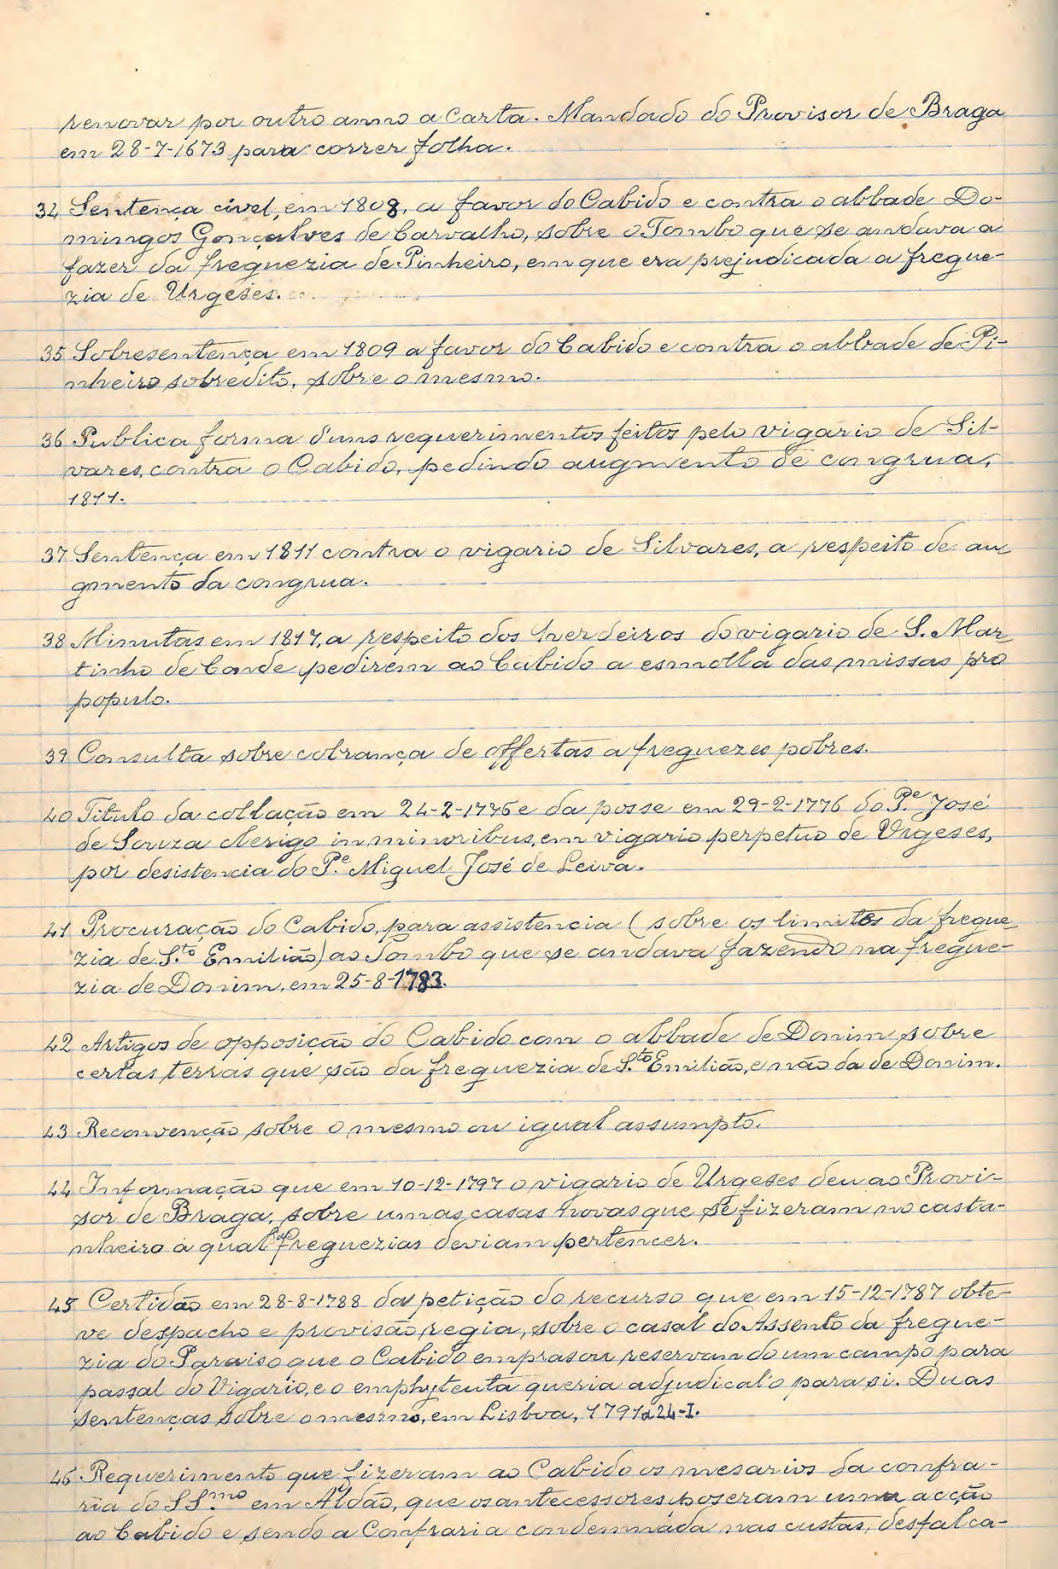 renovar por outro anno a Carta. Mandado do Provisor de Braga
em 28-7-1673 para correr folha.
34 Sentença civel, em 1808, a favor do Cabido e contra o abbade Do-
mingos Gonçalves de Carvalho, sobre o Tombo que se andava a
fazer da freguezia de Pinheiro, em que era prejudicada a fregue-
zia de Urgeses.
35 Sobresentença em 1809 a favor do Cabido e contra o abbade de Pi-
nheiro sobredito, sobre o mesmo.
36 Publica forma d'uns requerimentos feitos pelo vigario de Sil-
vares, contra o Cabido, pedindo augmento de congrua,
1811.
37 Sentença em 1811 contra o vigario de Silvares, a respeito de au
gmento da congrua.
38 Minutas em 1817, a respeito dos herdeiros do vigario de S. Mar
tinho de Conde pedirem ao Cabido a esmolla das missas pro
populo.
39 Consulta sobre cobrança de offertas a freguezes pobres.
40 Titulo da collação em 24-2-1776 e da posse em 29-2-1776 do P.e José
de Souza clerigo in minoribus, em vigario perpetuo de Urgeses,
por desistencia do P.e Miguel José de Leiva.
41 Procuração do Cabido, para assistencia (sobre os limites da fregue
zia de S.to Emilião) ao Tombo que se andava fazendo na fregue-
zia de Donim, em 25-8-1783.
42 Artigos de opposição do Cabido com o abbade de Donim sobre
certas terras que são da freguezia de S.to Emilião, e não da de Donim.
43 Reconvenção sobre o mesmo ou igual assumpto.
44 Informação que em 10-12-1797 o vigario de Urgeses deu ao Provi-
sor de Braga, sobre umas casas novas que se fizeram no casta-
nheiro a qual freguezias deviam pertencer.
45 Certidão em 28-8-1788 da petição do recurso que em 15-12-1787 obte-
ve despacho e provisão regia, sobre o casal do Assento da fregue-
zia do Paraiso que o Cabido emprasou reservando um campo para
passal do Vigario, e o emphyteuta queria adjudical'o para si. Duas
sentenças sobre o mesmo, em Lisboa, 1791 a 24-I.
46 Requerimento que fizeram ao Cabido os mesarios da confra-
ria do SS.mo em Aldão, que os antecessores poseram uma acção
ao Cabido e sendo a Confraria condemnada nas custas, desfalca-